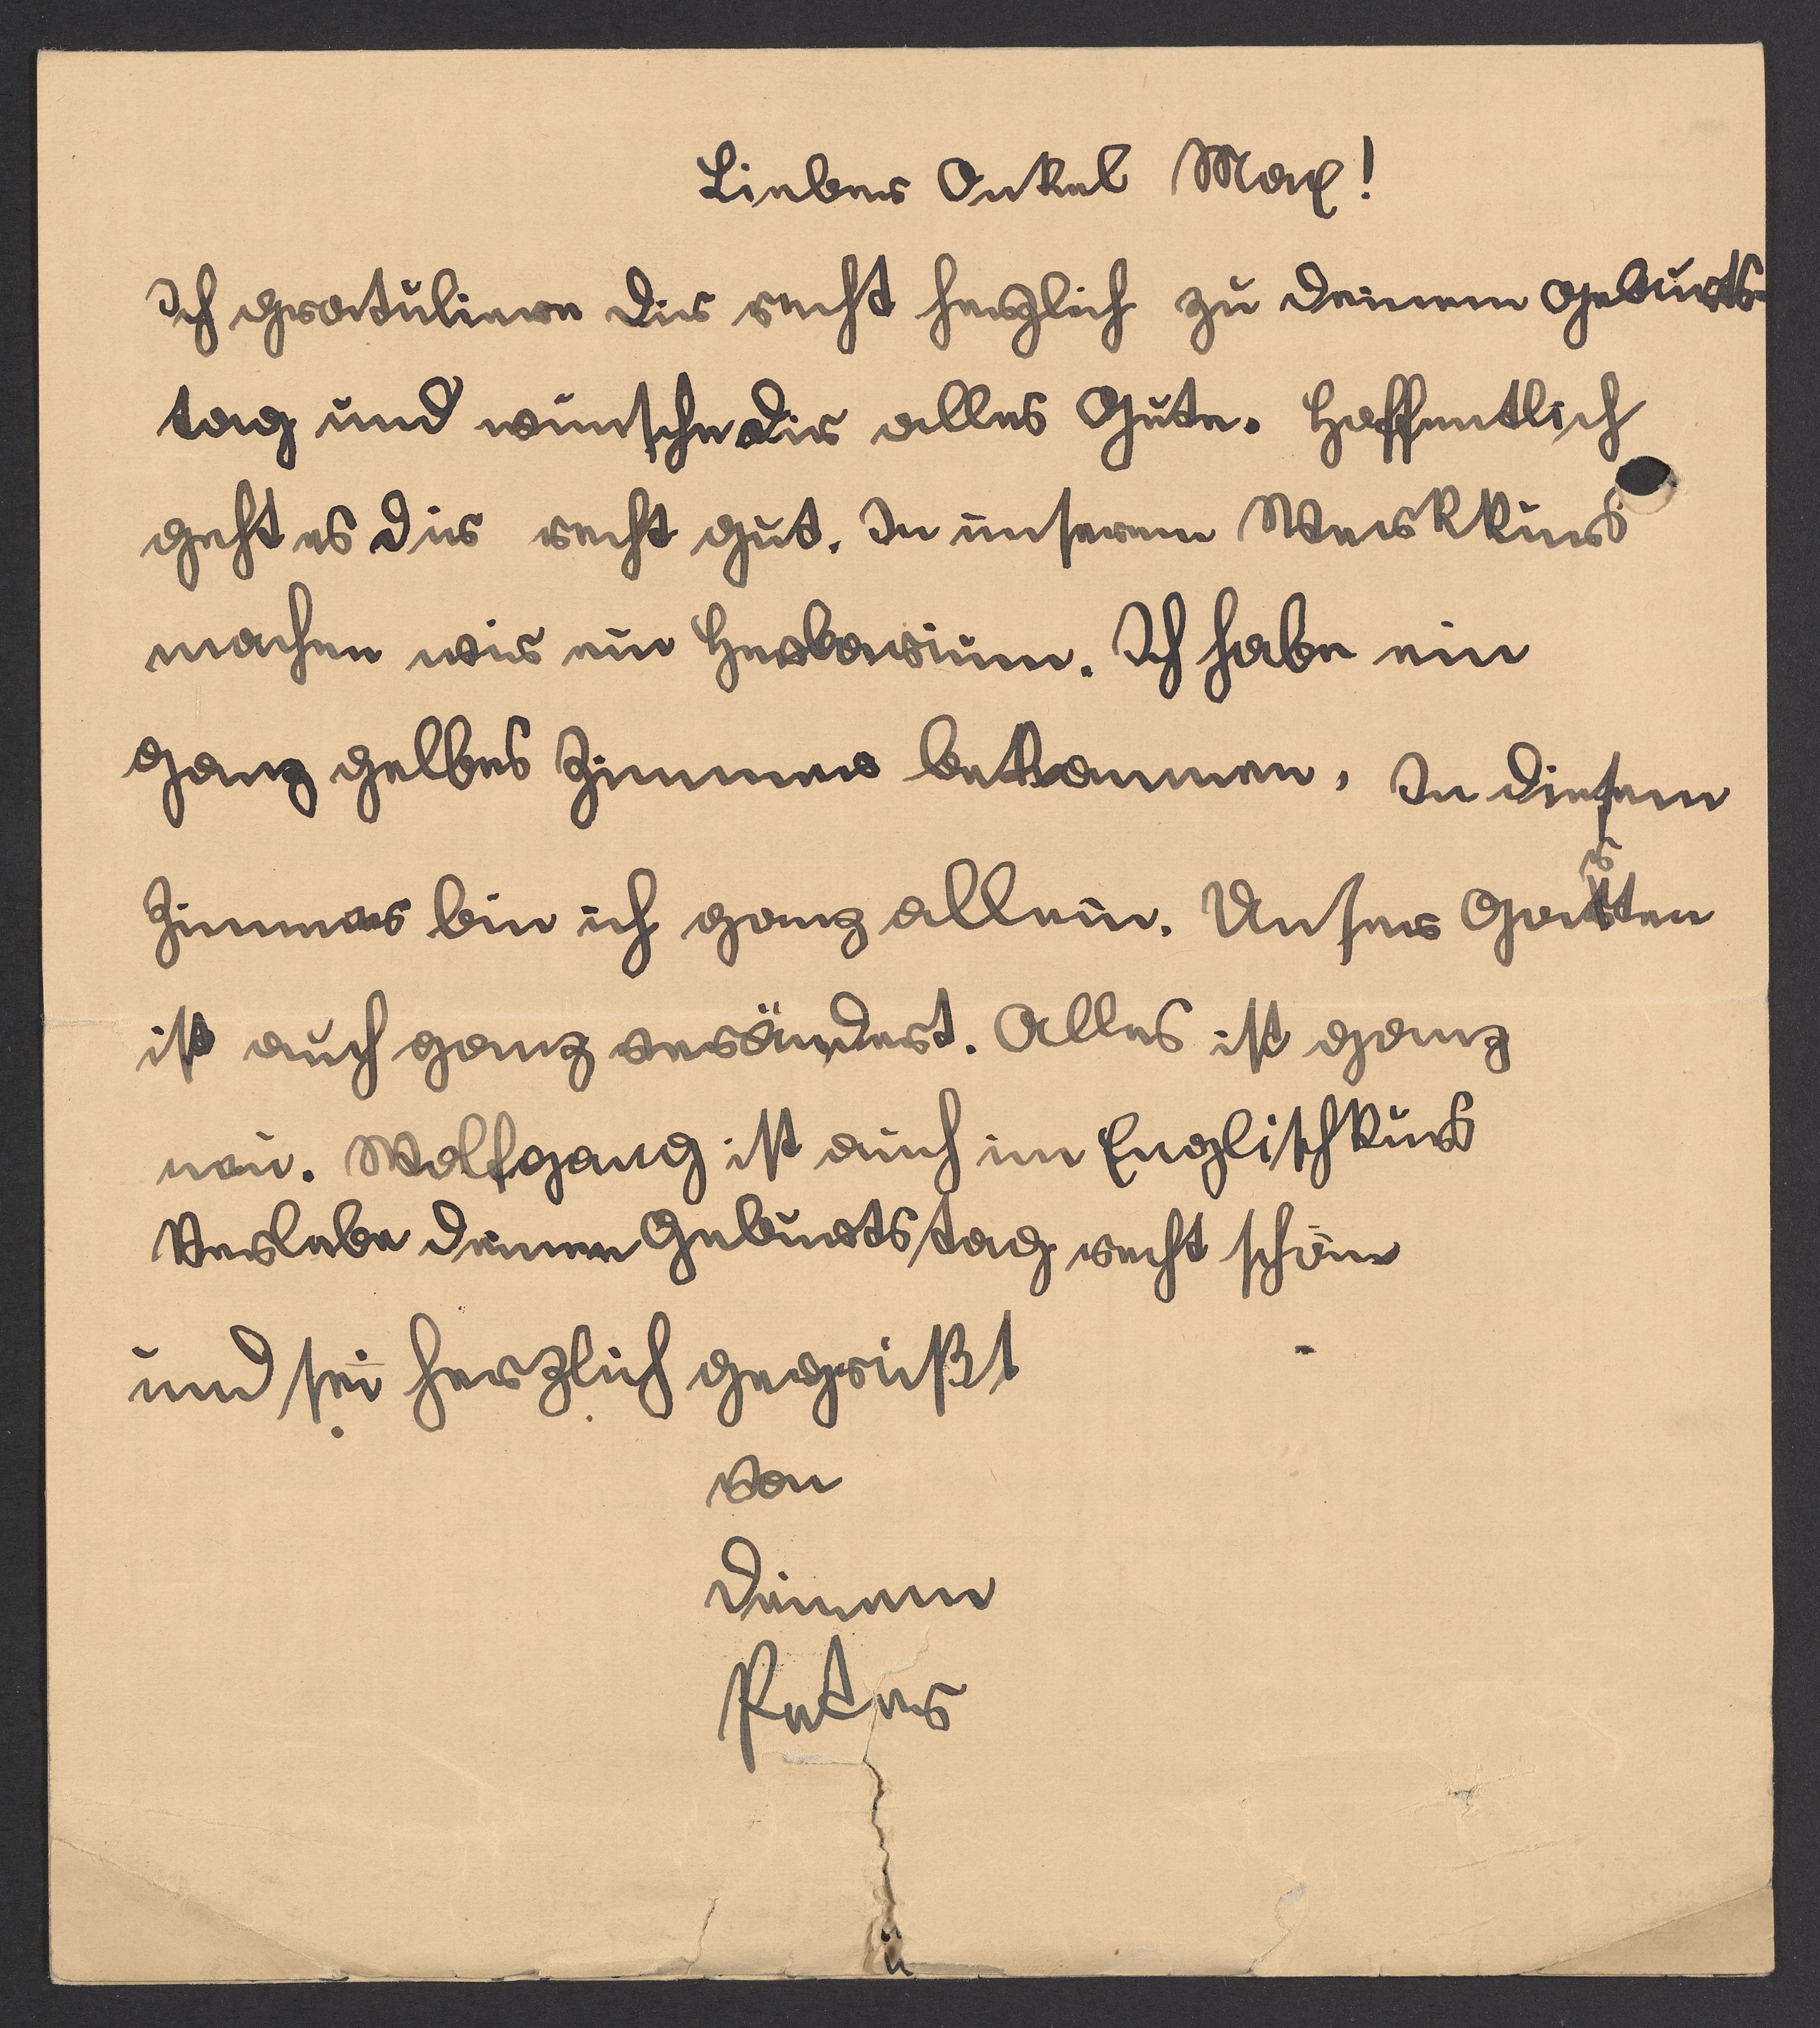 Lieber Onkel Max!
Ich gratuliere Dir recht herzlich zu deinem Geburts-
tag und wünsche Dir alles Gute. Hoffentlich
geht es Dir recht gut. In unserem Werkkurs
machen wir ein Herbarium. Ich habe ein
ganz gelbes Zimmer bekommen, In diesem
Zimmer bin ich ganz allein. Unser Garten
ist auch ganz verändert. Alles ist ganz
neu. Wolfgang ist auch im Englischkurs
Verlebe deinen Geburtstag recht schön
und sei herzlich gegrüßt
von
Deinem
Peter